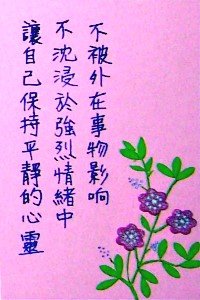 不被外在事物影响
不沈浸於強烈情緒中
讓自己保持平靜的心靈